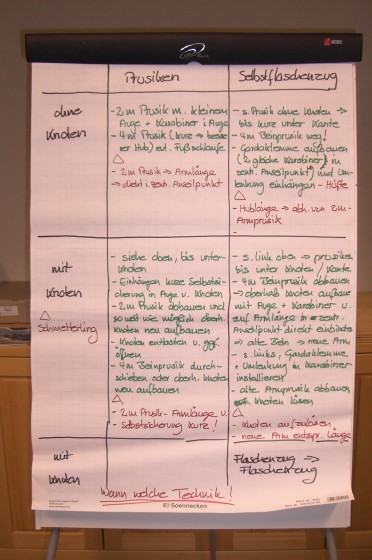 Prusiken
Selbstflaschenzug
ohne
Knoten
- 2m Prusik m. kleinem
Auge + Karabiner i. Auge
- 4m Prusik (kurz → besse
rer Hub) evt. Fußschlaufe
△
- 2m Prusik → Armlänge
→ nicht i. zentr. Anseilpunkt
- s. Prusik ohne Knoten →
bis kurz unter Kante
- 4m Beinprusik weg!
- Gardaklemme aufbauen
(2 gleiche Karabiner) in
zentr. Anseilpunkt und Um-
lenkung einhängen - Hüfte
△
- Hublänge → abh. von 2m-
Armprusik
-
mit
Knoten
△
Schmetterling
- siehe oben, bis unter
Knoten
- Einhängen kurze Selbstsi-
cherung in Auge v. Knoten
- 2m Prusik abbauen und
so weit wie möglich oberh.
Knoten neu aufbauen
- Knoten entlasten u. ggf.
öffnen
- 4m Beinprusik durch-
schieben oder oberh. Knoten
neu aufbauen
△
- 2m Prusik - Armlänge u.
- Selbstsicherung kurz!
- s. link oben → prusiken
bis unter Knoten / Kante
- 4m Beinprusik abbauen
→ oberhalb Knoten aufbauen
mit Auge + Karabiner u.
auf Armlänge in zentr.
Anseilpunkt direkt einbinden
→ alte Bein → neue Arm
- s. links, Gardaklemme
+ Umlenkung in Karabiner
installieren
- alte Armprusik abbauen
Knoten lösen
△
- Knoten aufzulösen
- neue Arm entspr. Länge
mit
Knoten
Flaschenzug →
Flaschenzug
Wann welche Technik!
Soennecken